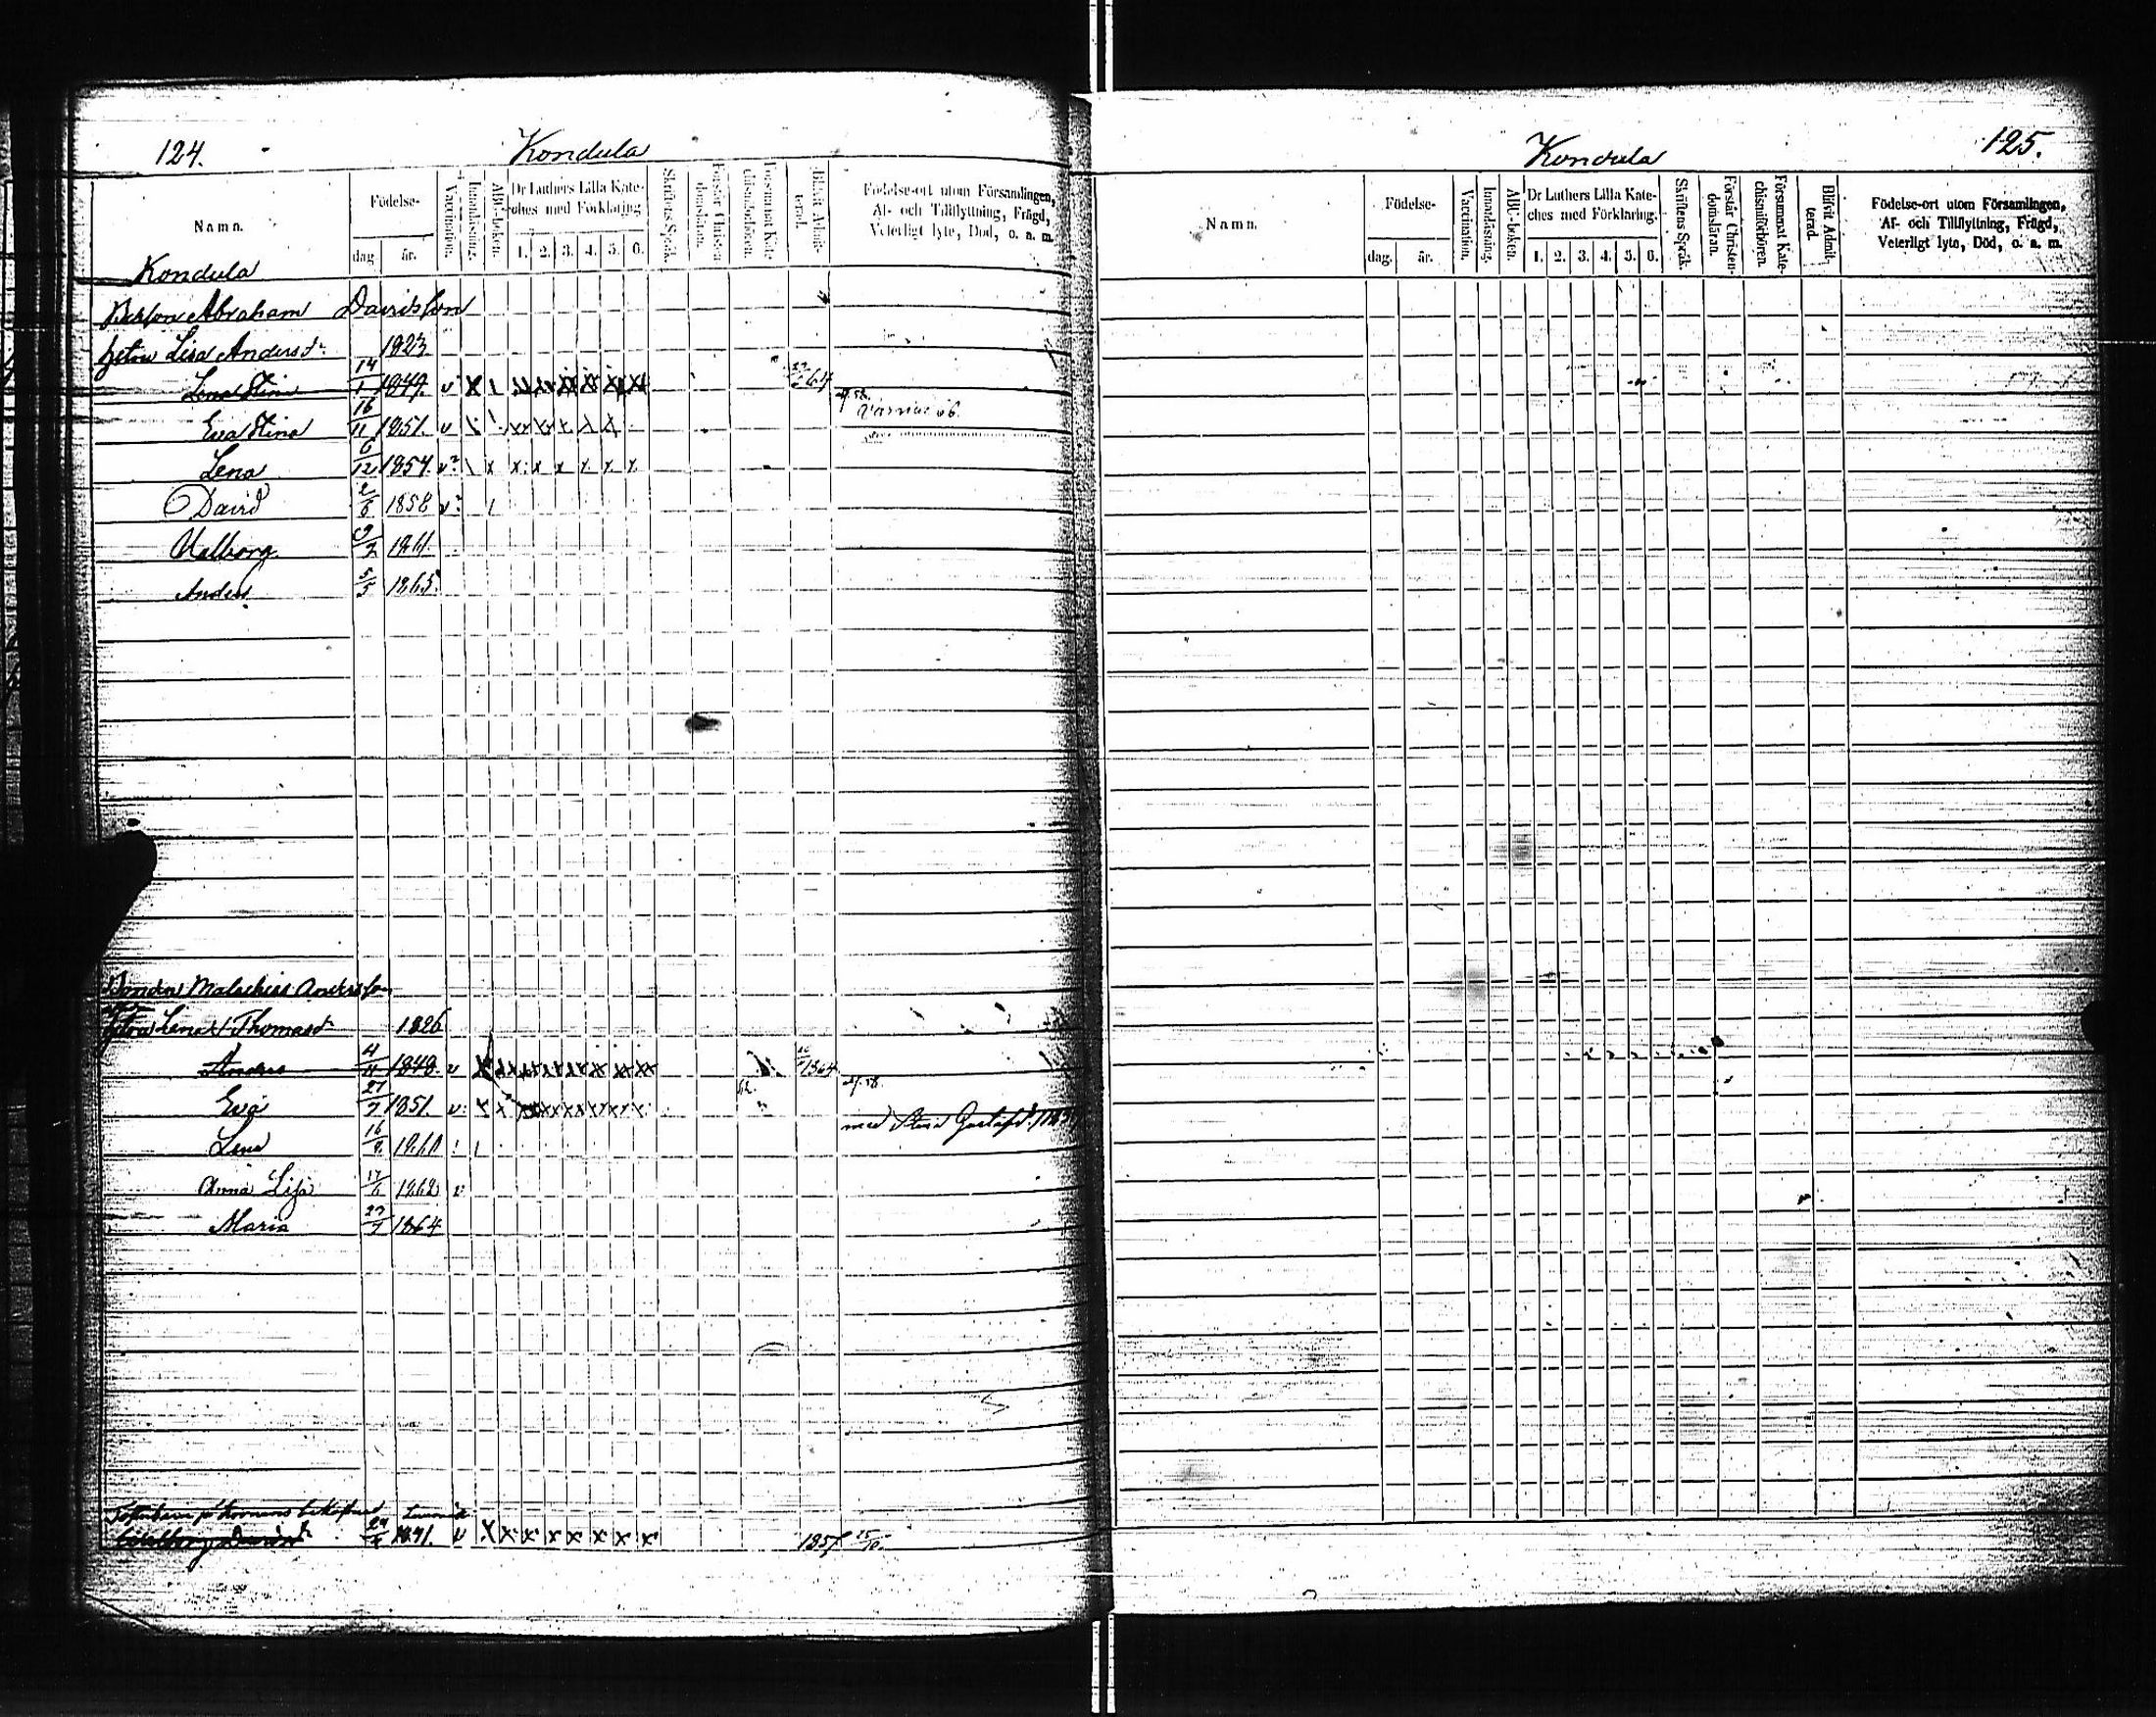 124.
Kondula
Namn.
Födelse-
dag.
år.
Vaccination.
Innanläsning.
ABC-boken.
Dr Luthers Lilla Kate-
ches med Förklaring
1. 2. 3. 4. 5. 6.
Skriftens Språk.
Förstår Christen-
domsläran.
Försummat Kate-
chismiförhören.
Blifvit Admit-
terad.
Födelse-ort utom Församlingen,
Af- och Tillflyttning, Frägd,
Veterligt lyte, Död, o. s. m.
Kondula
Abraham Davidsson
Lisa Andersdr 1823
Lena Stina 14/1 1849. v 64
Eva Stina 16/11 1851. v
Lena 6/12 1854. v
David 2/6 1858 v
Valborg 1861.
Anders 5/5 1865.
Bonden Malachias Andersson
Thomasdr 1826
Anders 4/11 1848. v 1864
Eva 27/7 1851. v
med Stina Gustafsdr
Lena 16/9 1860
Anna Lisa 17/6 1862 v
Maria 27/7 1864
1841. v x x x x x x x x 1857 25/10.
Kondula
125.
Namn.
Födelse-
dag.
år.
Vaccination.
Innanläsning.
ABC-boken.
Dr Luthers Lilla Kate-
ches med Förklaring.
1. 2. 3. 4. 5. 6.
Skriftens Språk.
Förstår Christen-
domsläran.
Försummat Kate-
chismiförhören.
Blifvit Admit-
terad.
Födelse-ort utom Församlingen,
Af- och Tillflyttning, Frägd,
Veterligt lyte, Död, o. s. m.